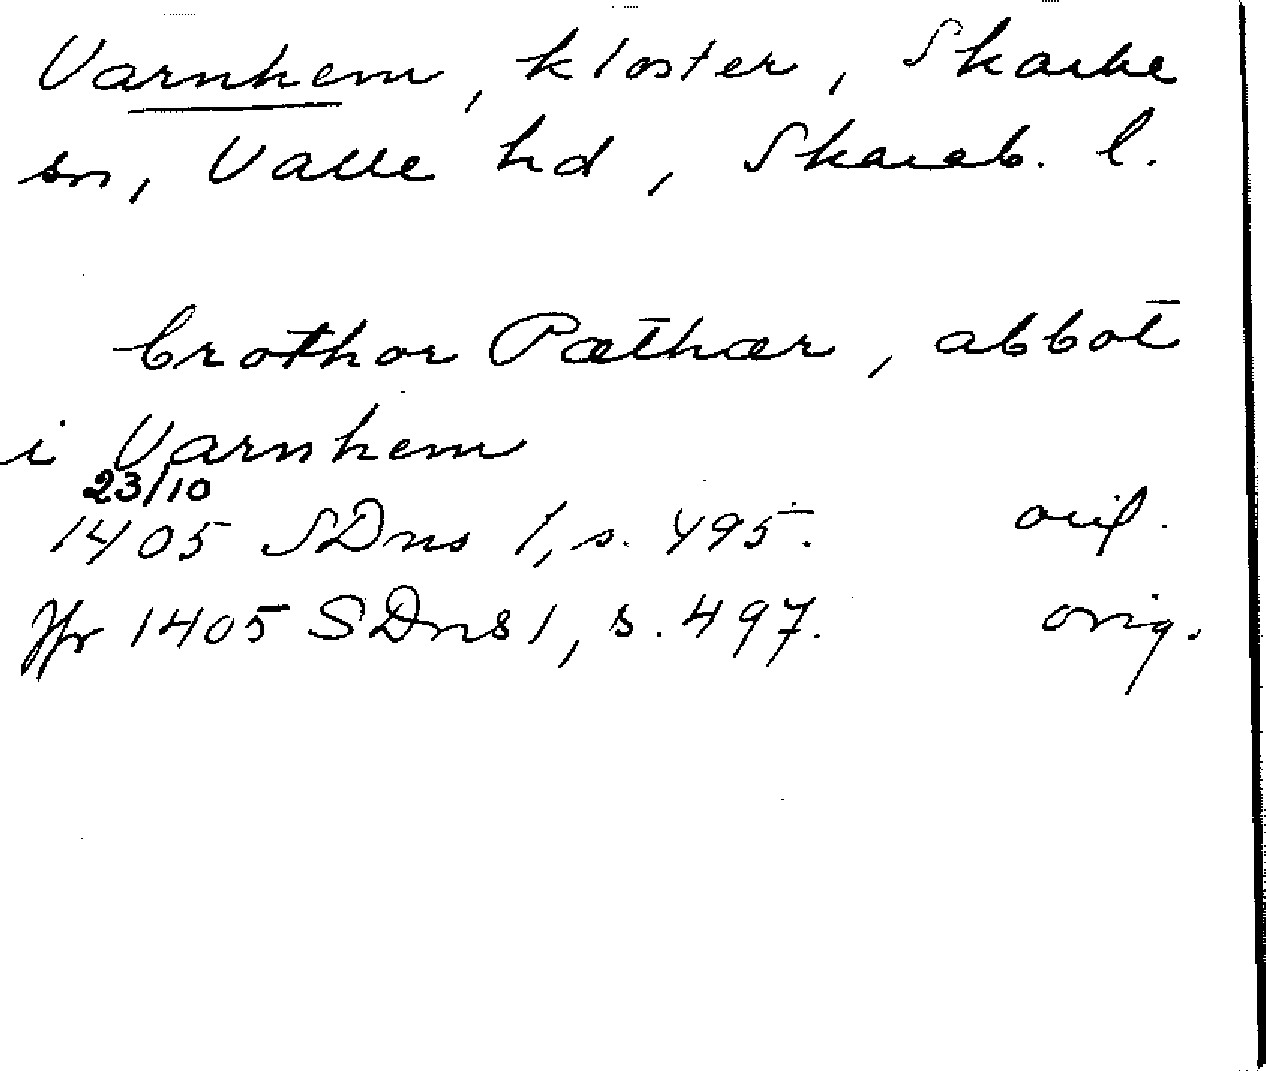 Varnhem, kloster, Skarke
sn, Valle hd, Skarab. l.
brothor Pæthær, abbot
i Varnhem
23/10
1405 SDns 1, s. 495. orig.
Jfr 1405 SDns 1, s. 497. orig.